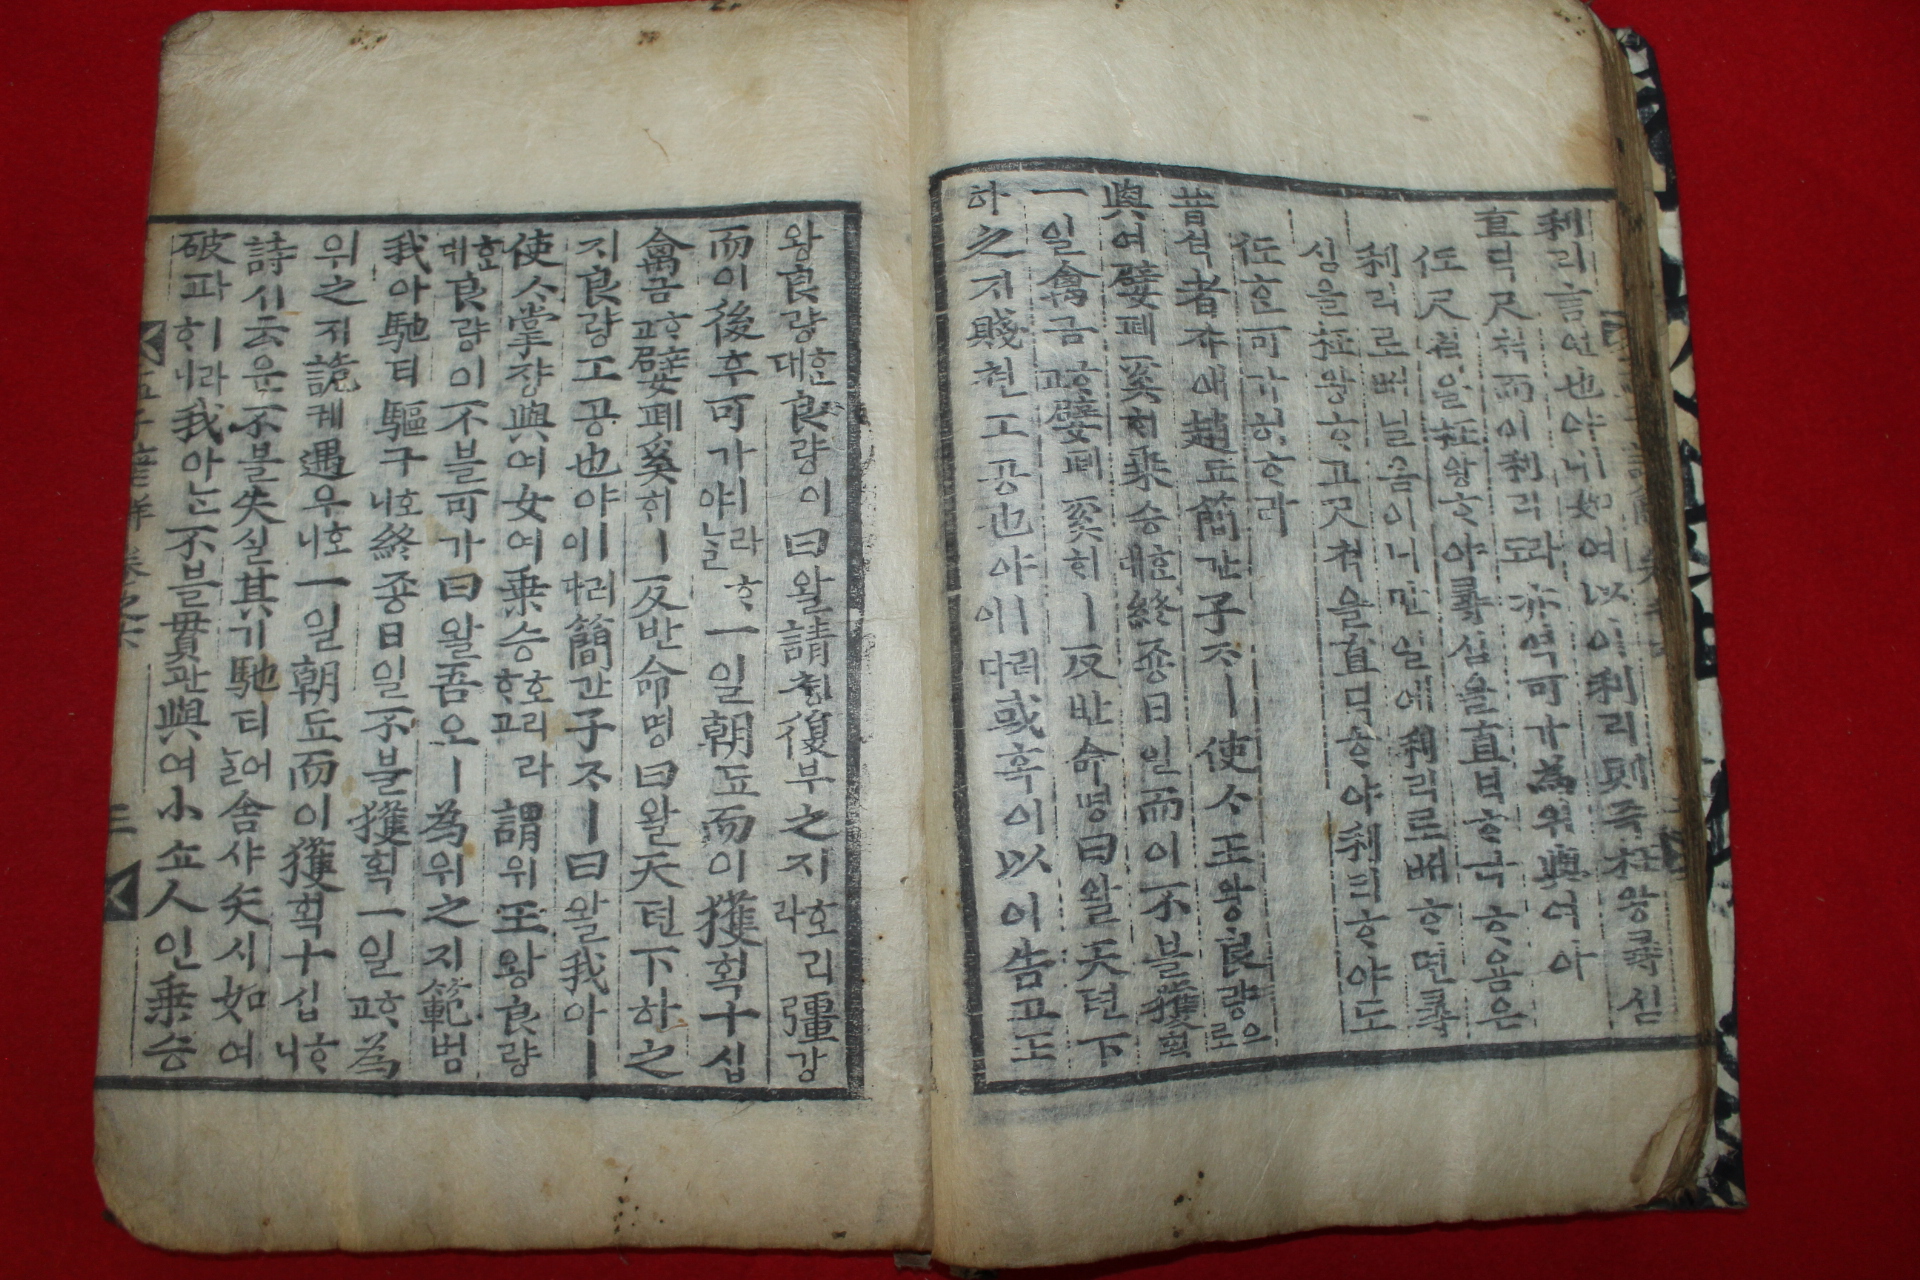 利리言언也야ㅣ니如여以이利리則즉枉왕尋심
直딕尺쳑而이利리라도亦역可가為위與여아
ᄯᅩ尺쳑을枉왕ᄒᆞ야尋심을直딕ᄒᆞ욤은
利리로ᄡᅥ닐옴이니만일에利리로ᄡᅥᄒᆞ면尋
심을枉왕ᄒᆞ고尺쳑을直딕ᄒᆞ야利리ᄒᆞ야도
ᄯᅩᄒᆞᆫ可가히ᄒᆞ랴
昔셕者쟈애趙됴簡간子ᄌᆞㅣ使ᄉᆞ王왕良량으로
與여嬖폐奚ᄒᆡ乘승ᄒᆞᆫ대終죵日일而이不블獲획
一일禽금ᄒᆞ고嬖폐奚ᄒᆡㅣ反반命명曰왈天텬下
하之지賤쳔工공也야ㅣ러이다或혹이以이告고王
왕良량ᄒᆞᆫ대良량이曰왈請쳥復부之지호리라彊강
而이後후可가ㅣ라ᄒᆞ야ᄂᆞᆯ一일朝됴而이獲획十십
禽금ᄒᆞ고嬖폐奚ᄒᆡㅣ反반命명曰왈天텬下하之
지良량工공也야ㅣ러이다簡간子ᄌᆞㅣ曰왈我아ㅣ
使ᄉᆞ掌쟝與여女여乘승호리라ᄒᆞ고謂위王왕良량
ᄒᆞᆫ대良량이不블可가曰왈吾오ㅣ為위之지範범
我아馳티驅구호니終죵日일不블獲획一일ᄒᆞ고為
위之지詭궤遇우호니一일朝됴而이獲획十십ᄒᆞ니
詩시云운不블失실其기馳티어ᄂᆞᆯ舍샤矢시如여
破파ㅣ라ᄒᆞ니我아ᄂᆞᆫ不블貫관與여小쇼人인乘승
孟子諺解 卷之六 三